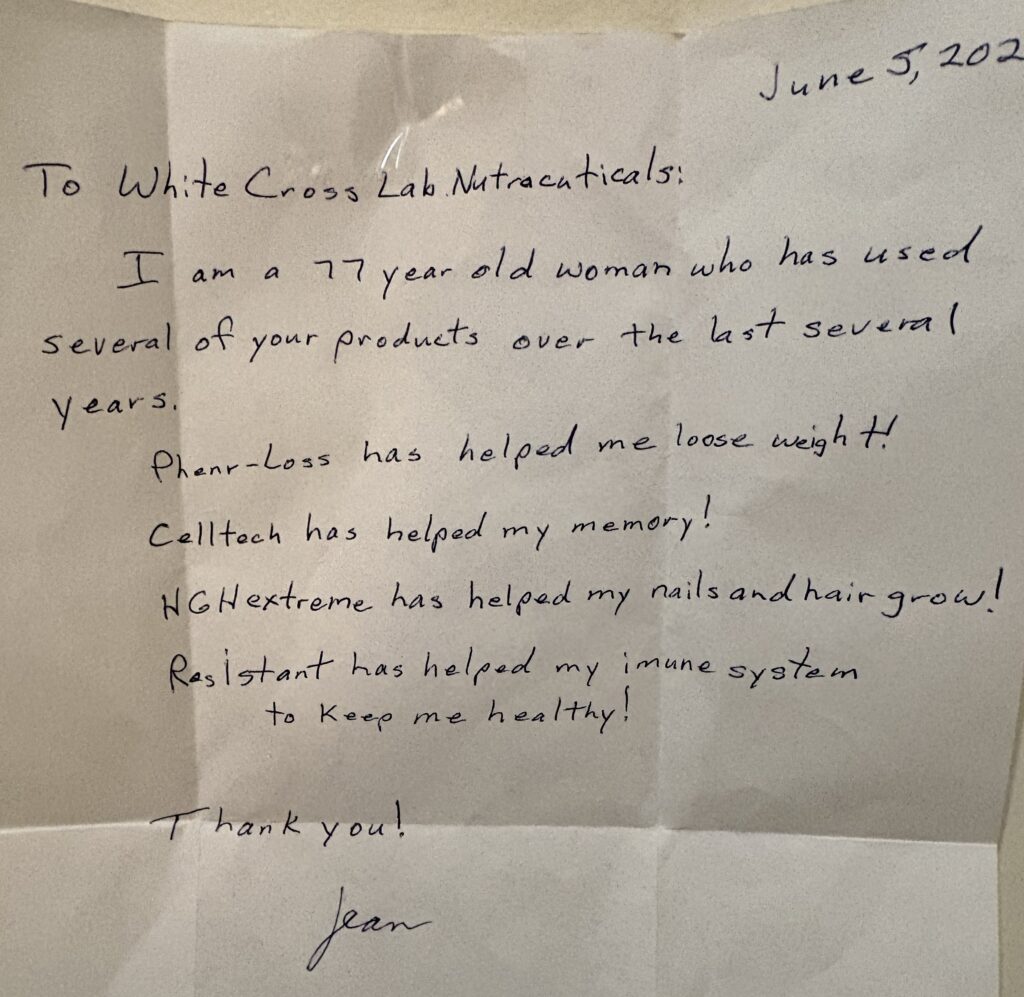 June 5, 202
To White Cross Lab Nutracuticals:
I am a 77 year old woman who has used
several of your products over the last several
years.
Phenr-Loss has helped me loose weight!
Celltech has helped my memory!
HGHextreme has helped my nails and hair grow!
Resistant has helped my imune system
to keep me healthy!
Thank you!
Jean